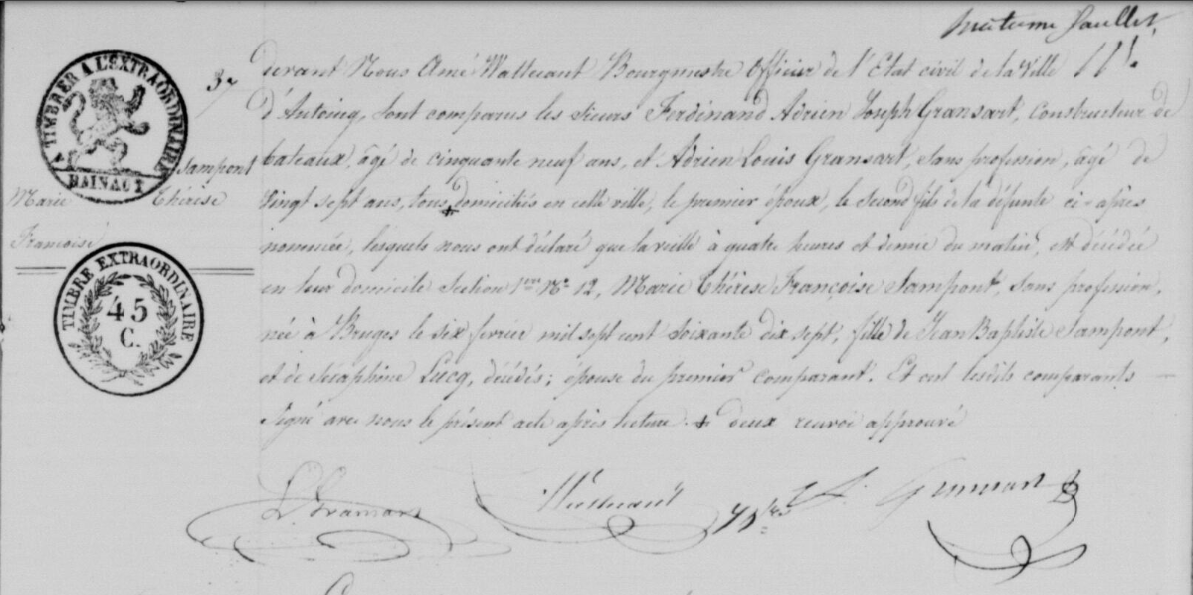 TIMBRER A L'EXTRAORDINAIRE
HAINAUT
37
Sampont
Marie Thérèse
Françoise
TIMBRE EXTRAORDINAIRE
45
C.
devant Nous Amé Bourgmestre Officier de l'Etat civil de la Ville
d'Antoing, sont comparus les sieurs Ferdinand Adrien Joseph Gransart, Constructeur de
bateaux, âgé de cinquante neuf ans, et Adrien Louis Gransart, sans profession, âgé de
Vingt sept ans, tous domiciliés en cette ville, le premier époux, le second fils de la défunte ci-après
nommée, lesquels nous ont déclaré que la veille à quatre heures et demie du matin, est décédée
en leur domicile Section 1ere No 12, Marie Thérèse Françoise Sampont, sans profession,
née à Bruges le six fevrier mil sept cent soixante dix sept, fille de Jean Baptiste Sampont,
et de Séraphine Lucq, décédés; épouse du premier comparant. Et ont lesdits comparants
signé avec nous le présent acte après lecture. + deux renvoi approuvé
Gransart